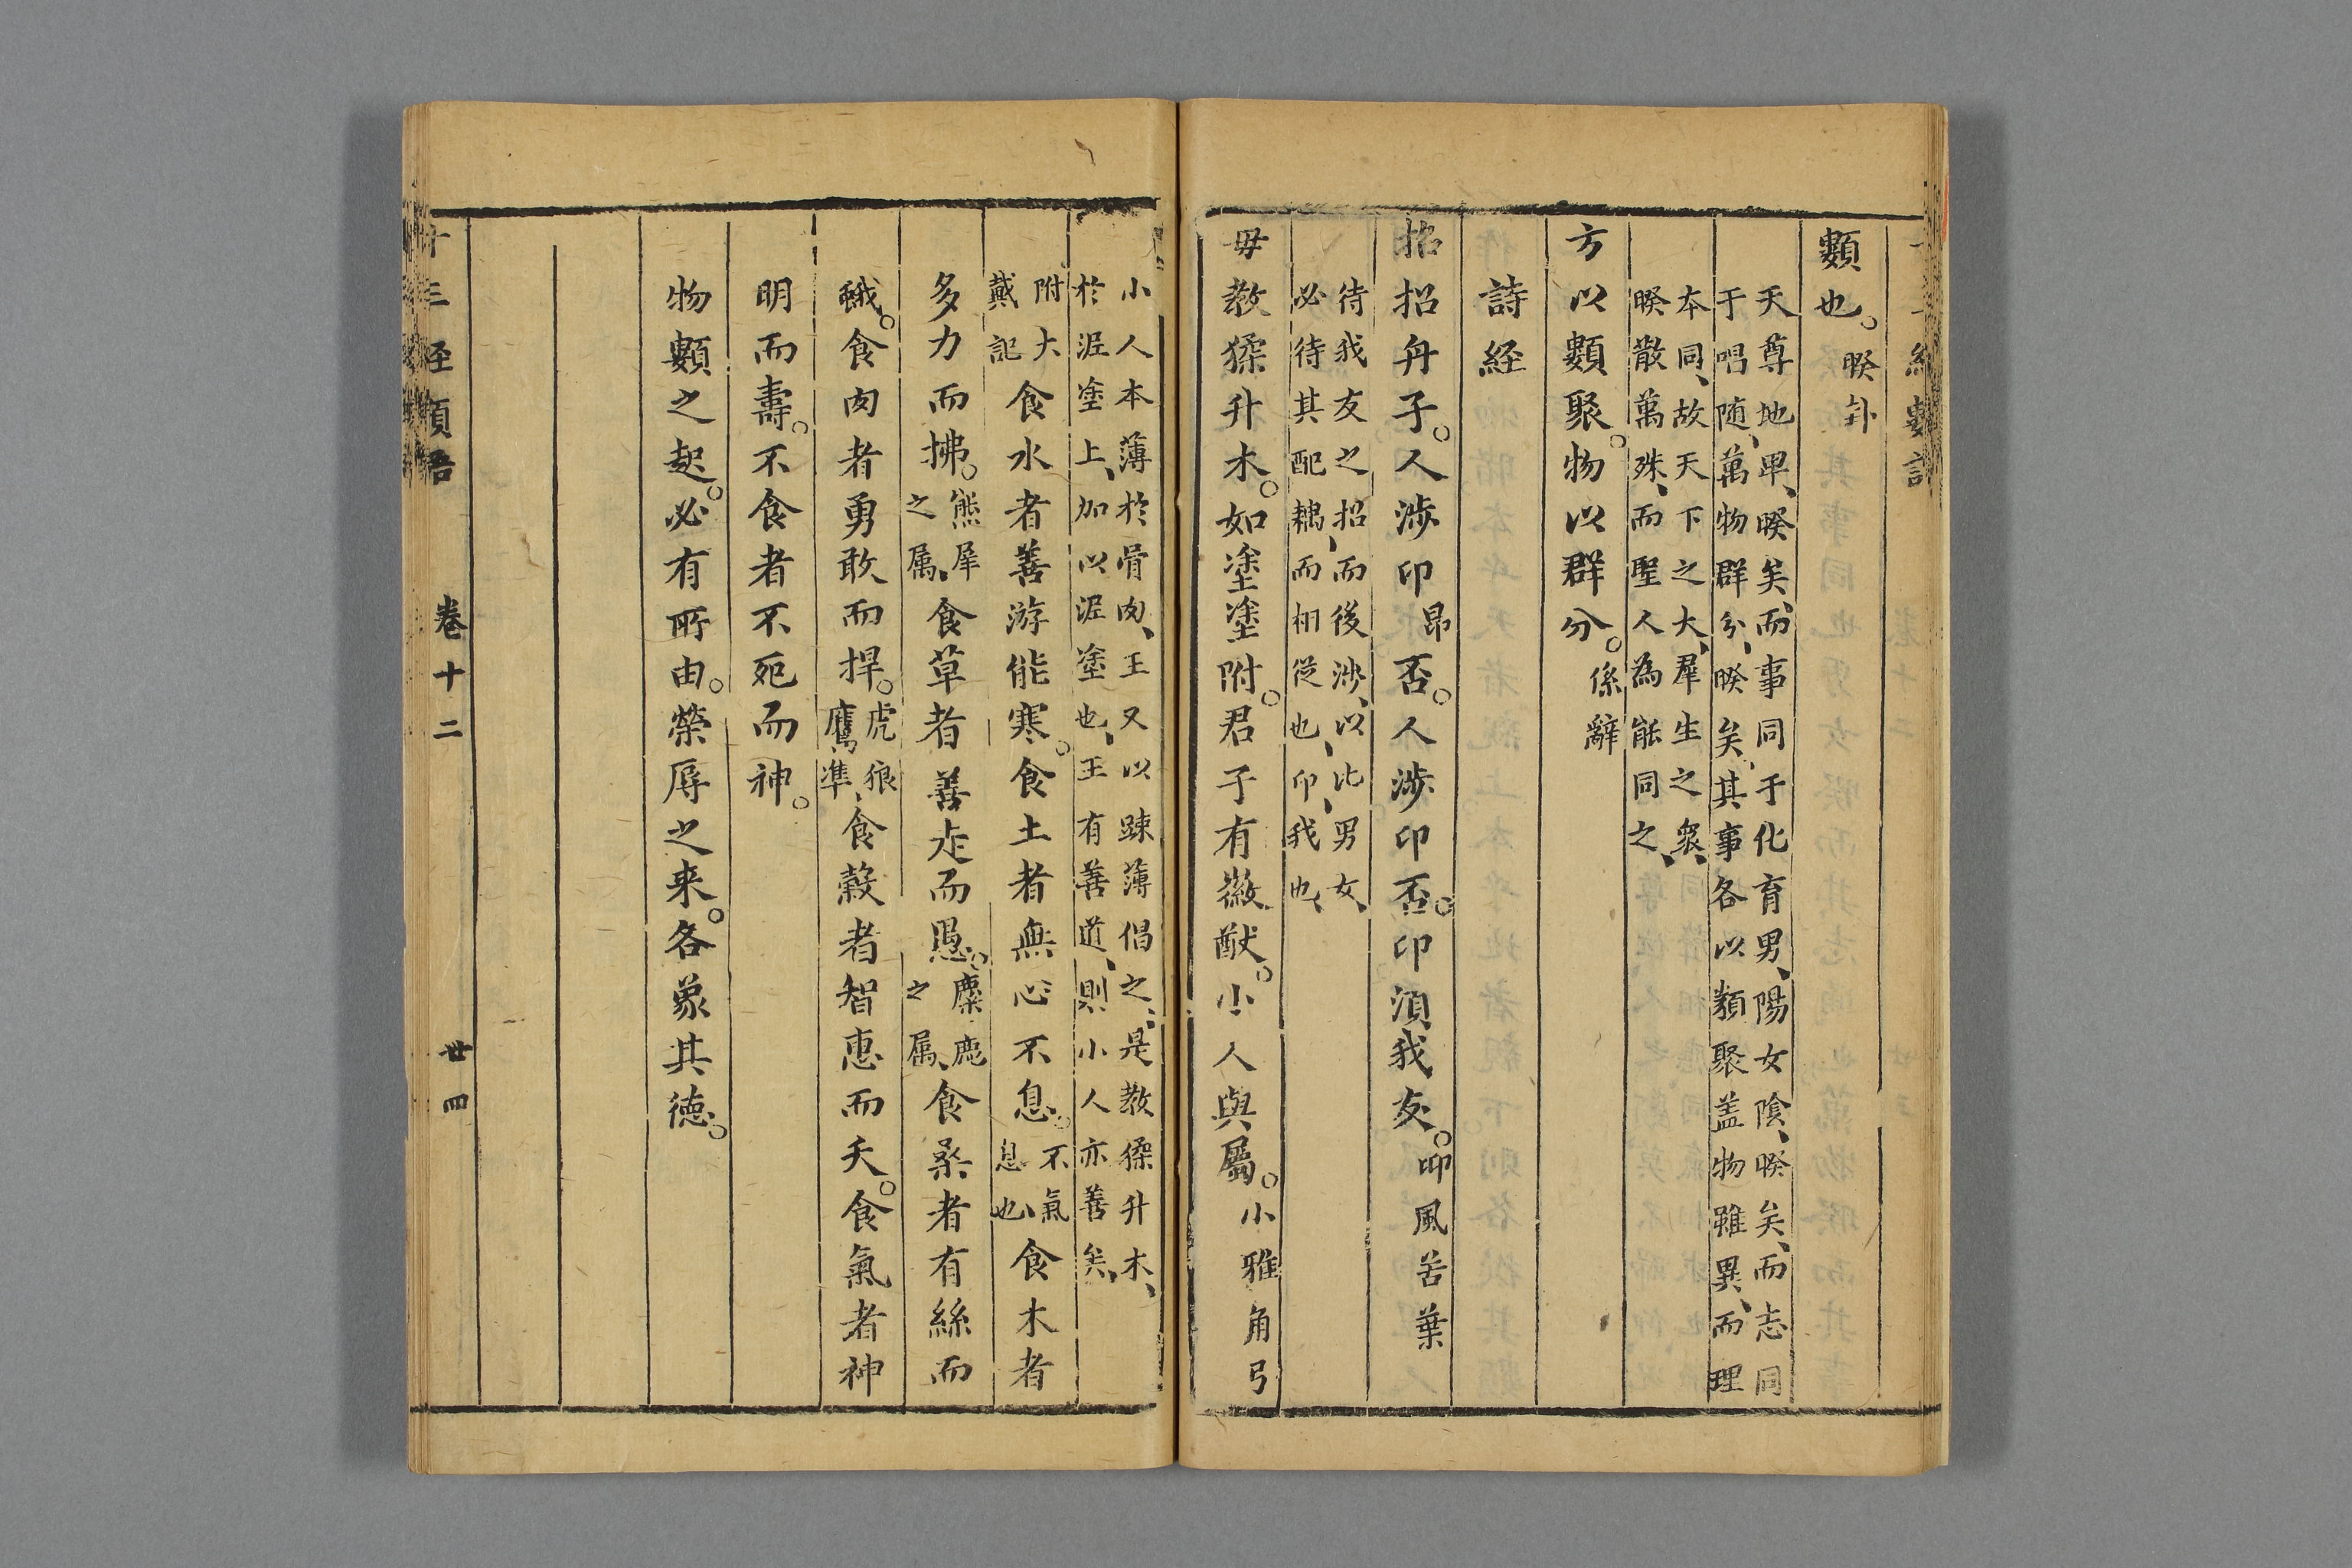 類也。睽卦
天尊地卑、睽矣、而事同于化育男、陽女陰、睽矣、而志同
于唱随、萬物群分、睽矣、其事各以類聚盖物雖異、而理
本同、故天下之大、羣生之衆、
睽散萬殊、而聖人為能同之、
方以類聚。物以群分。係辭
詩経
招招舟子。人涉卬昂否。人涉卬否。卬湏我友。邶風苦葉
待我友之招、而後涉、以比男女、
必待其配耦、而相從也、卬、我也、
毋教猱升木。如塗塗附。君子有徽猷。小人與屬。小雅角弓
小人本薄於骨肉、王又以踈薄倡之、是教猱升木、
於泥塗上、加以泥塗也、王有善道、則小人亦善矣、
附大
戴記
食水者善游能寒。食土者無心不息。不氣
息也、
食木者
多力而拂。熊犀
之属、
食草者善走而愚。麋鹿
之属、
食桑者有絲而
蛾。食肉者勇敢而捍。虎狼
鷹凖、
食穀者智恵而夭。食氣者神
明而壽。不食者不死而神。
物類之起。必有所由。榮辱之来。各象其徳。
卷十二
丗四